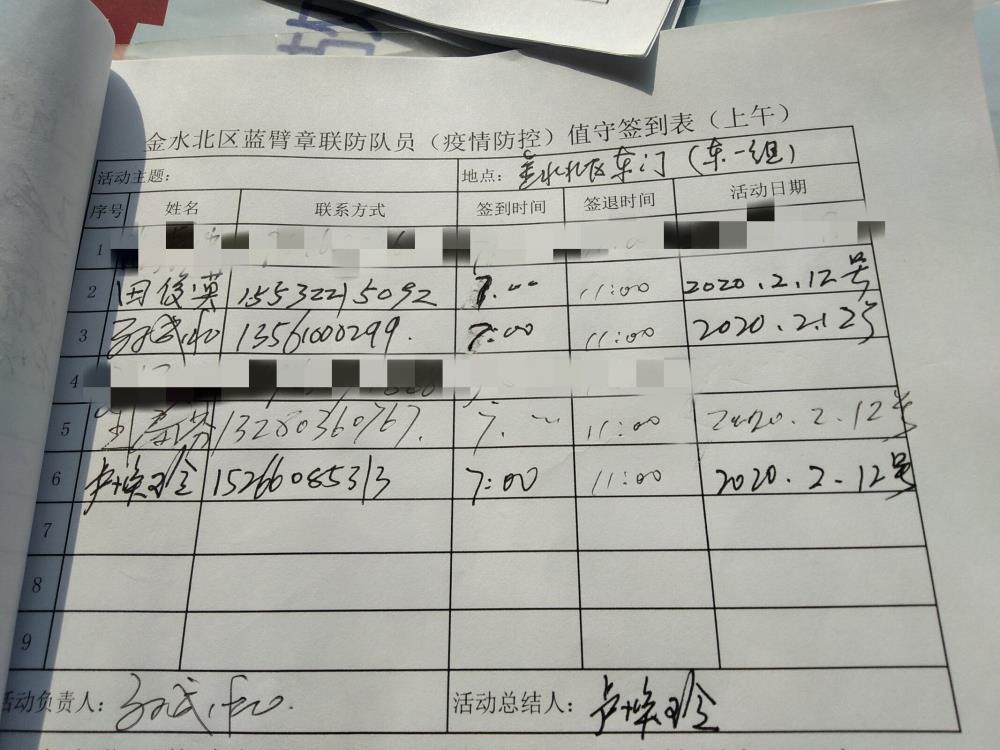 金水北区蓝臂章联防队员（疫情防控）值守签到表（上午）
活动主题： 地点：金水北区东门（东一组）
序号 姓名 联系方式 签到时间 签退时间 活动日期
1
2 田俊英 15532215092 7:00 11:00 2020.2.12号
3 13561000299. 7:00 11:00 2020.2.12号
4
5 13280360767. 7:00 11:00 2020.2.12号
6 卢焕玲 15266085313 7:00 11:00 2020.2.12号
7
8
9
活动负责人： 活动总结人：卢焕玲